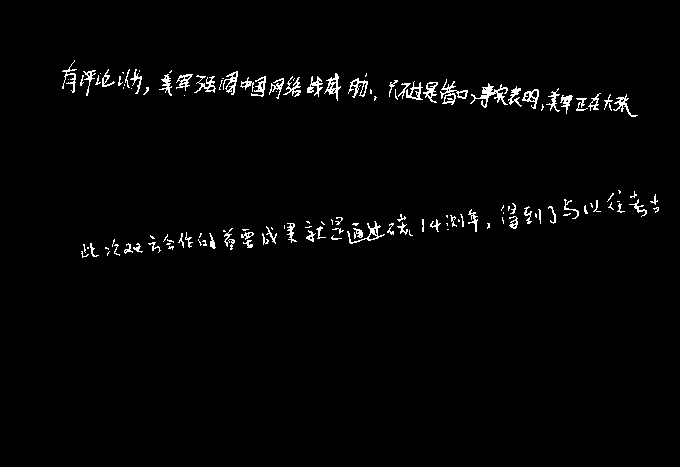 有评论认为，美军强调中国网络战威胁，只不过是借口，事实表明，美军正在大张
此次双方合作的首要成果就是通过碳14测年，得到了与以往考古